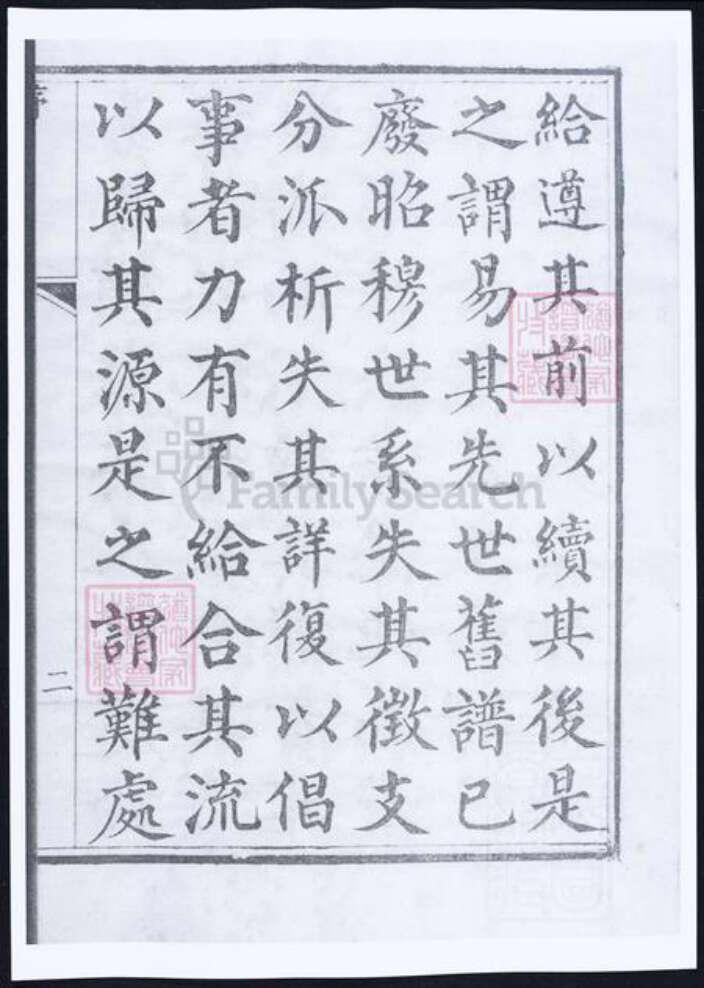 給遵其前以續其後是
之謂易其先世舊譜已
廢昭穆世系失其徵支
分派析失其詳復以倡
事者力有不給合其流
以歸其源是之謂難處
二
FamilySearch